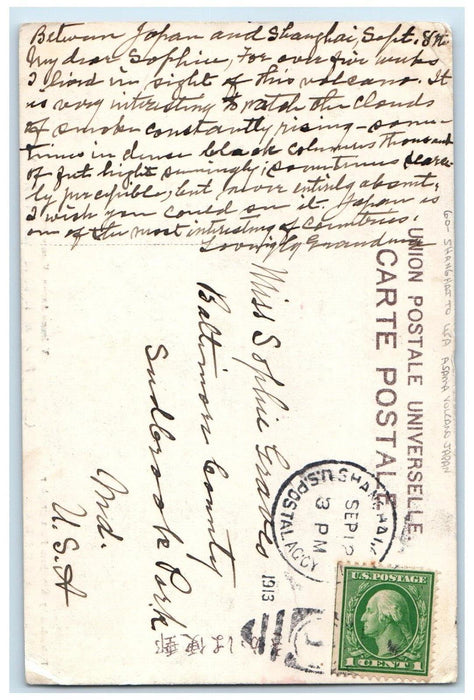 Between Japan and Shanghai, Sept. 8th
My dear Sophie, For over five weeks
I lived in sight of this volcano. It
is very interesting to watch the clouds
of smoke constantly rising - some-
times in dense black columns thousand
of feet hight seemingly; sometimes scarce-
ly precepible, but never entirely absent.
I wish you could see it. Japan is
one of the most interesting of countries.
Lovingly Grandma
Miss Sophie Graves
Baltimore County
Sudbrook Park
Md.
U.S.A
UNION POSTALE UNIVERSELLE.
CARTE POSTALE
60- SHANGHAI TO USA ASAMA VOLCANO JAPAN
SHANGHAI
U.S. POSTAL AGCY
SEP 12
3 PM
1913
U.S. POSTAGE
1 CENT 1
郵便は